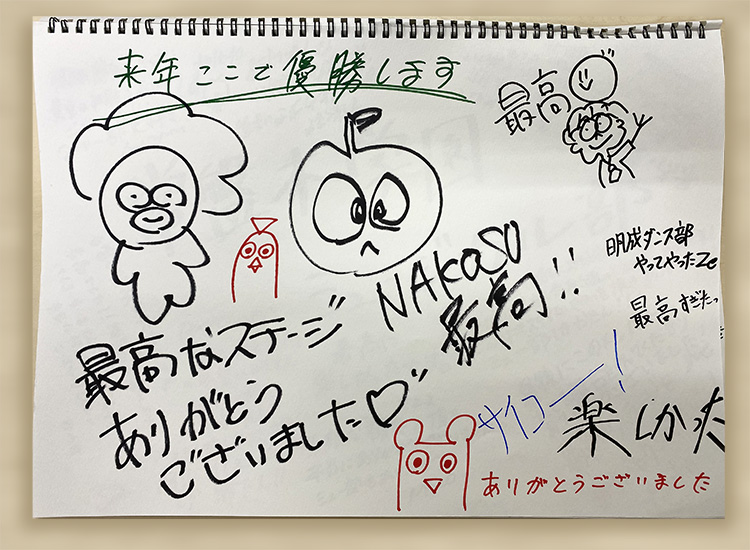 来年ここで優勝します
最高
NAKOSO
最高!!
明成ダンス部
やってやったZe
最高すぎたっ
最高なステージ
ありがとう
ございました♡
サイコー!
楽しかった
ありがとうございました